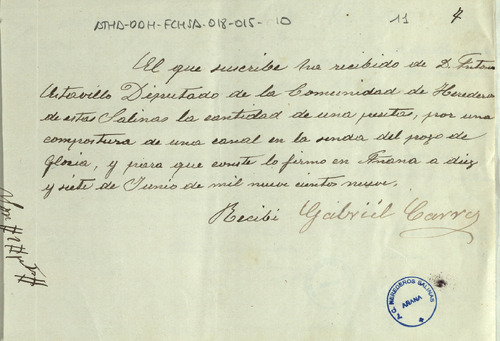 ATHA-DDH-FCHSA-018-015-10
11
7
El que suscribe ha recibido de D. Antonio
Astovillo Diputado de la Comunidad de Herederos
de estas Salinas la cantidad de una peseta, por una
compostura de una canal en la senda del pozo de
Gloria, y para que conste lo firmo en Añana a diez
y siete de Junio de mil nueve cientos nueve.
Recibi Gabriel Carro
HEREDEROS SALINAS
AÑANA